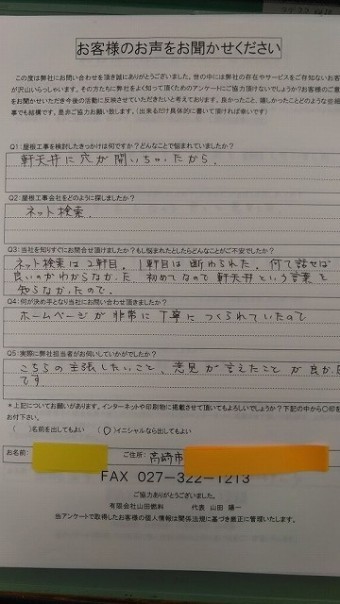 お客様のお声をお聞かせください
この度は弊社にお問い合わせを頂き誠にありがとうございました。世の中には弊社の存在やサービスをご存知ないお客
が沢山いらっしゃいます。その方たちに弊社をよく知って頂くためのアンケートにご協力頂けないでしょうか?お客様のご意
をお聞かせいただき今後の活動に反映させていただきたいと考えております。良かったこと、嬉しかったことどのような些細
事でも結構です。是非ご協力お願い致します。(出来るだけ具体的に書いて頂ければ幸いです)
Q1:屋根工事を検討したきっかけは何ですか?どんなことで悩まれていましたか?
軒天井に穴が開いちゃたから.
Q2:屋根工事会社をどのように探しましたか?
ネット検索.
Q3:当社を知りすぐにお問合せ頂けましたか?もし悩まれたとしたらどんなことがご不安でしたか?
ネット検索は2軒目. 1軒目は断わられた. 何て話せば
良いのかわからなかった 初めてなので軒天井という言葉を
知らなかたので.
Q4:何が決め手となり当社にお問い合わせ頂きましたか?
ホームページが非常に丁寧につくられていたので
Q5:実際に弊社担当者がお伺いしていかがでしたか?
こちらの主張したいこと、意見が言えたことが良か
です
*上記についてお願いがあります。インターネットや印刷物に掲載させて頂してもよろしいでしょうか?下記の中から○印を
お付下さい。
( )名前を出してもよい (○)イニシャルなら出してもよい
お名前: ご住所: 高崎市
FAX 027-322-1213
ご協力ありがとうございました。
有限会社山田燃料 代表 山田 陽一
当アンケートで取得したお客様の個人情報は関係法規に基づき厳正に管理いたします。